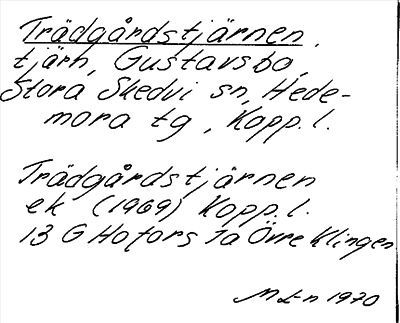 Trädgårdstjärnen,
tjärn, Gustavsbo,
Stora Skedvi sn, Hede-
mora tg, Kopp. l.
Trädgårdstjärnen
ek (1969) Kopp. l.
13 G Hofors 1a Övre Klingen
M Lt-n 1970